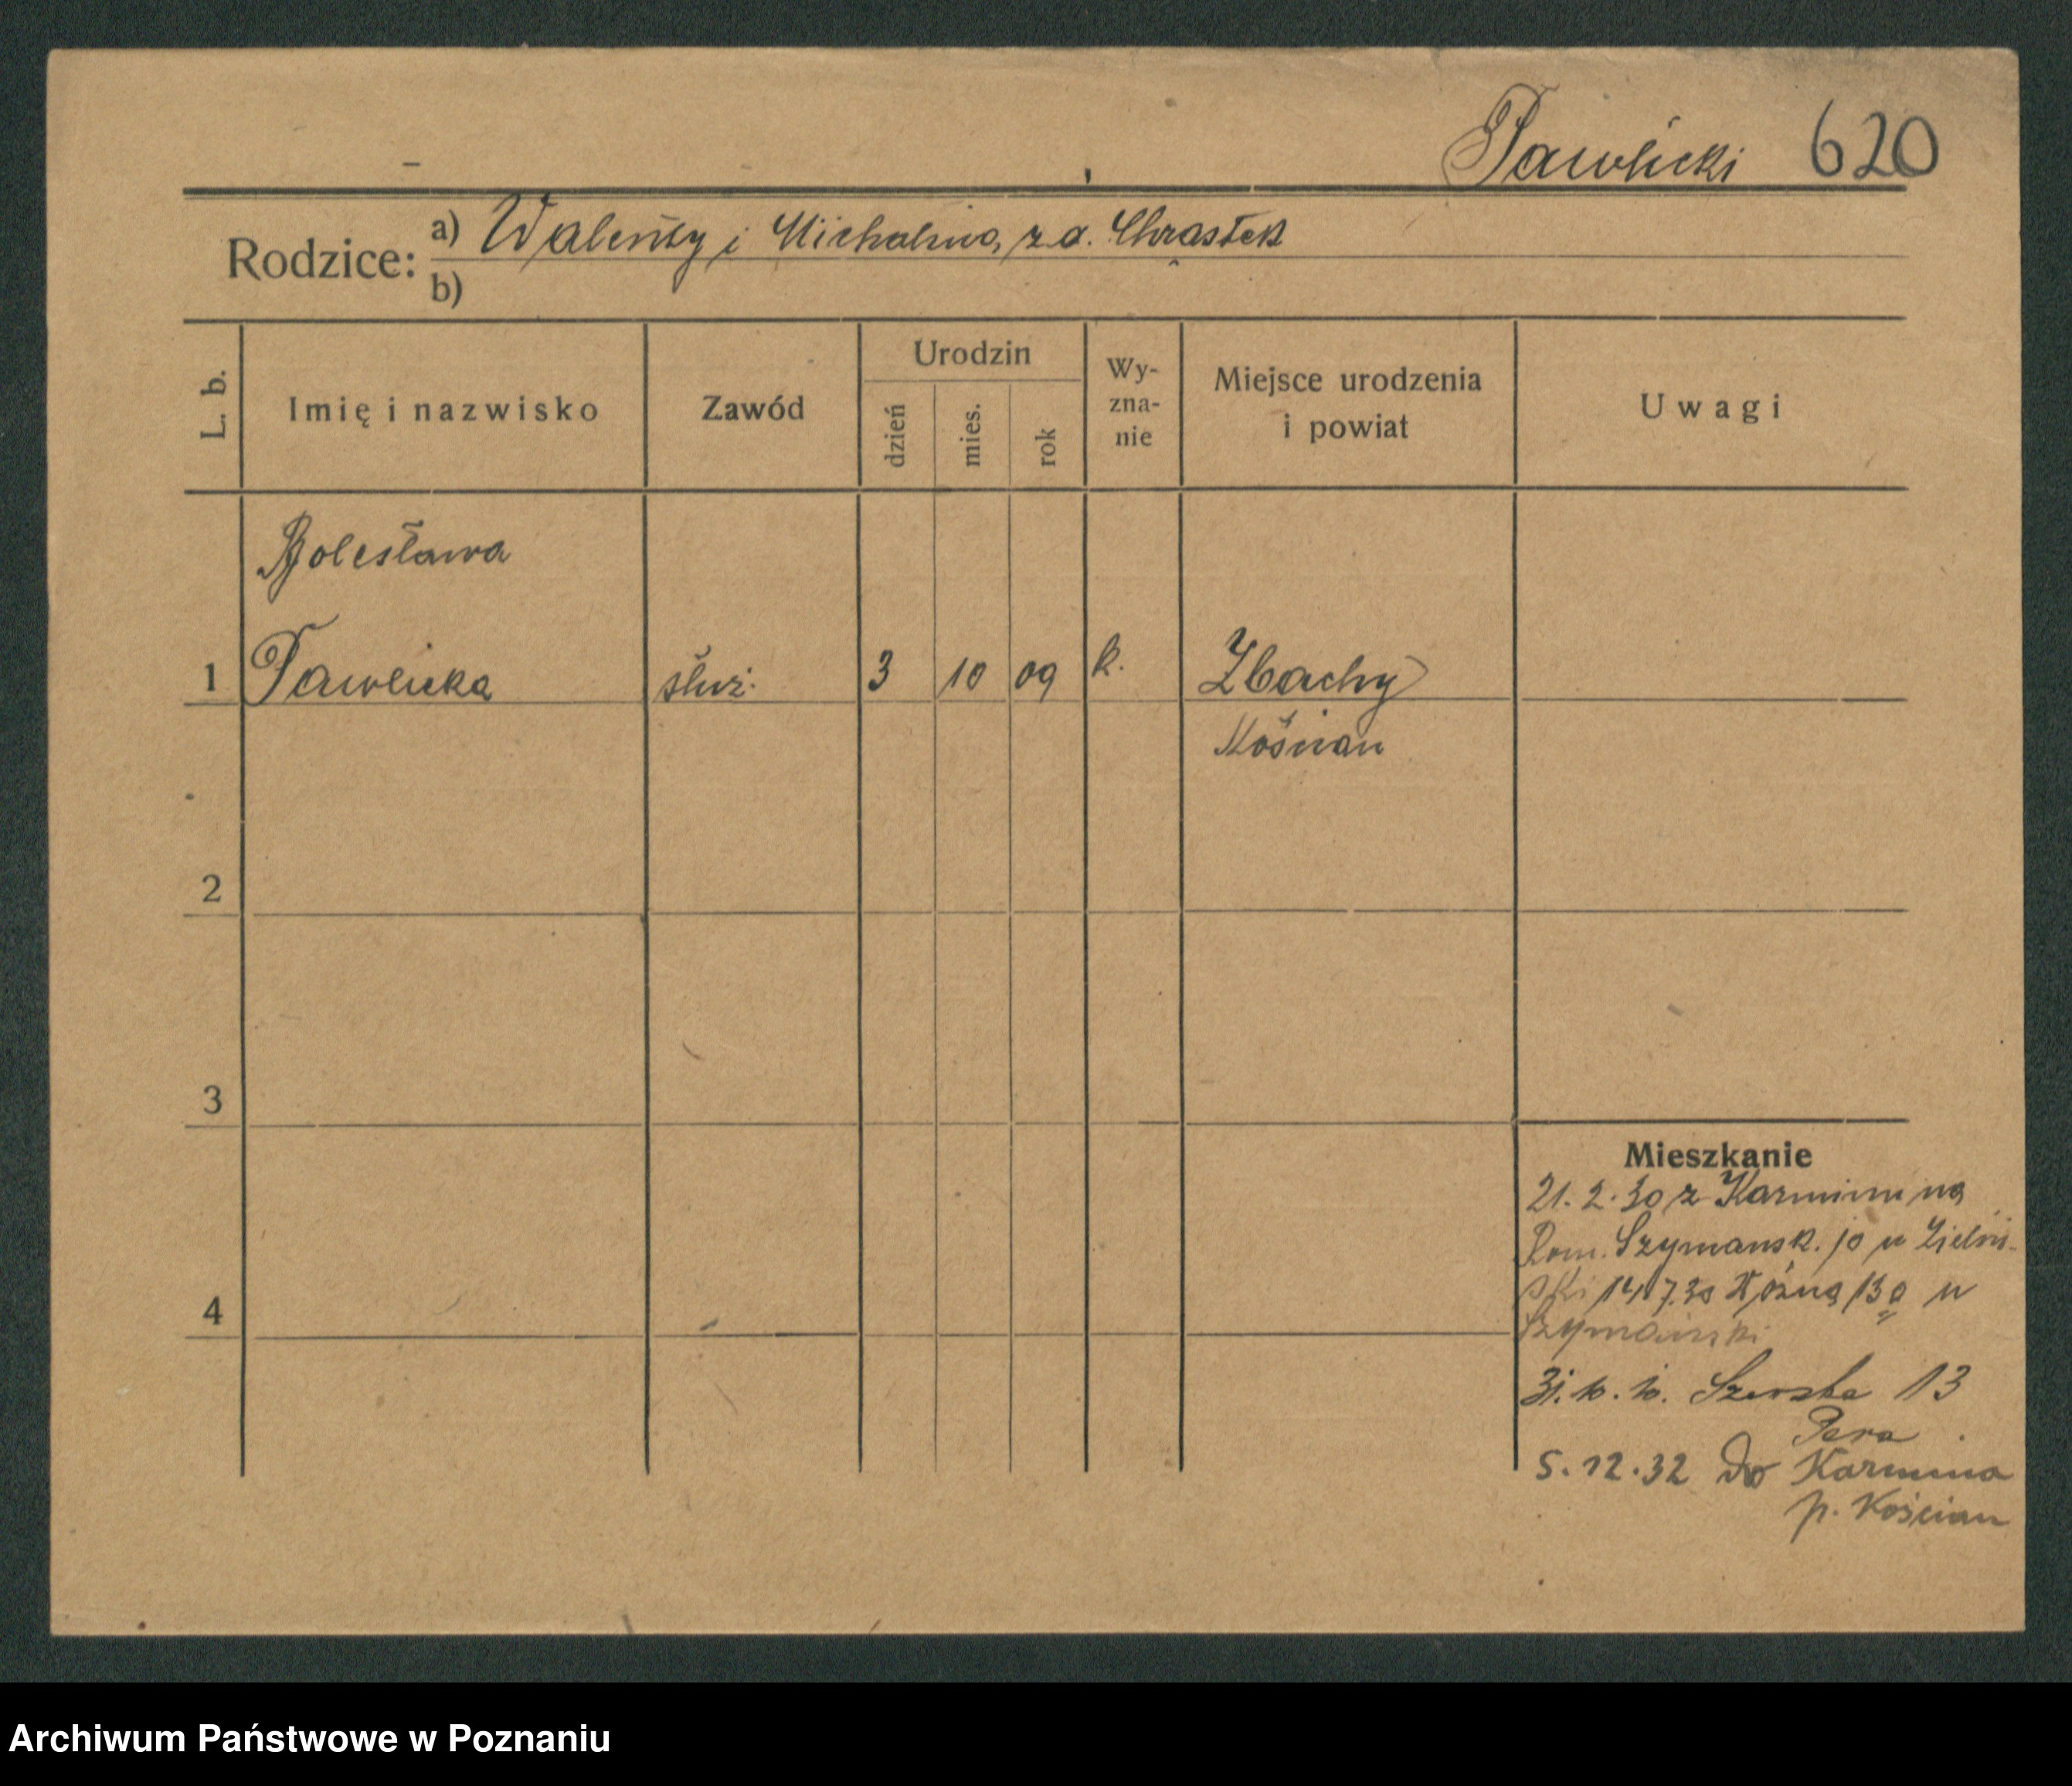 Pawlicki 620
Rodzice: a) Walenty i Michalina z d. Chrąstek
b)
L. b. Imię i nazwisko Zawód Urodzin dzień mies. rok Wy-zna-nie Miejsce urodzenia i powiat Uwagi
Bolesława
1 Pawlicka służ. 3 10 09 k. Zbęchy
Kościan
2
3
4
Mieszkanie
21.2.30 z Karmina na
Rom. Szymansk. 10 u Zieliń-
ski 14 7.30 Różna 13a u
Szymański
31.10.30. Szewska 13
5.12.32 do Karmina
p. Kościan
Archiwum Państwowe w Poznaniu